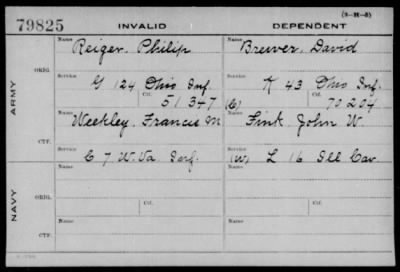 (3-H-5)
79825 INVALID DEPENDENT
Name Name
Reiger, Philip Brewer, David
ORIG.
Service Service
G 124 Ohio Inf. K 43 Ohio Inf.
Ctf. Ctf.
51347 (C) 70204
ARMY
Name Name
Weekley, Francis M Fink, John W.
CTF.
Service Service
C 7 W. Va. Inf. (W) L 16 Ill Cav.
Name Name
ORIG.
Ctf. Ctf.
NAVY
Name Name
CTF.